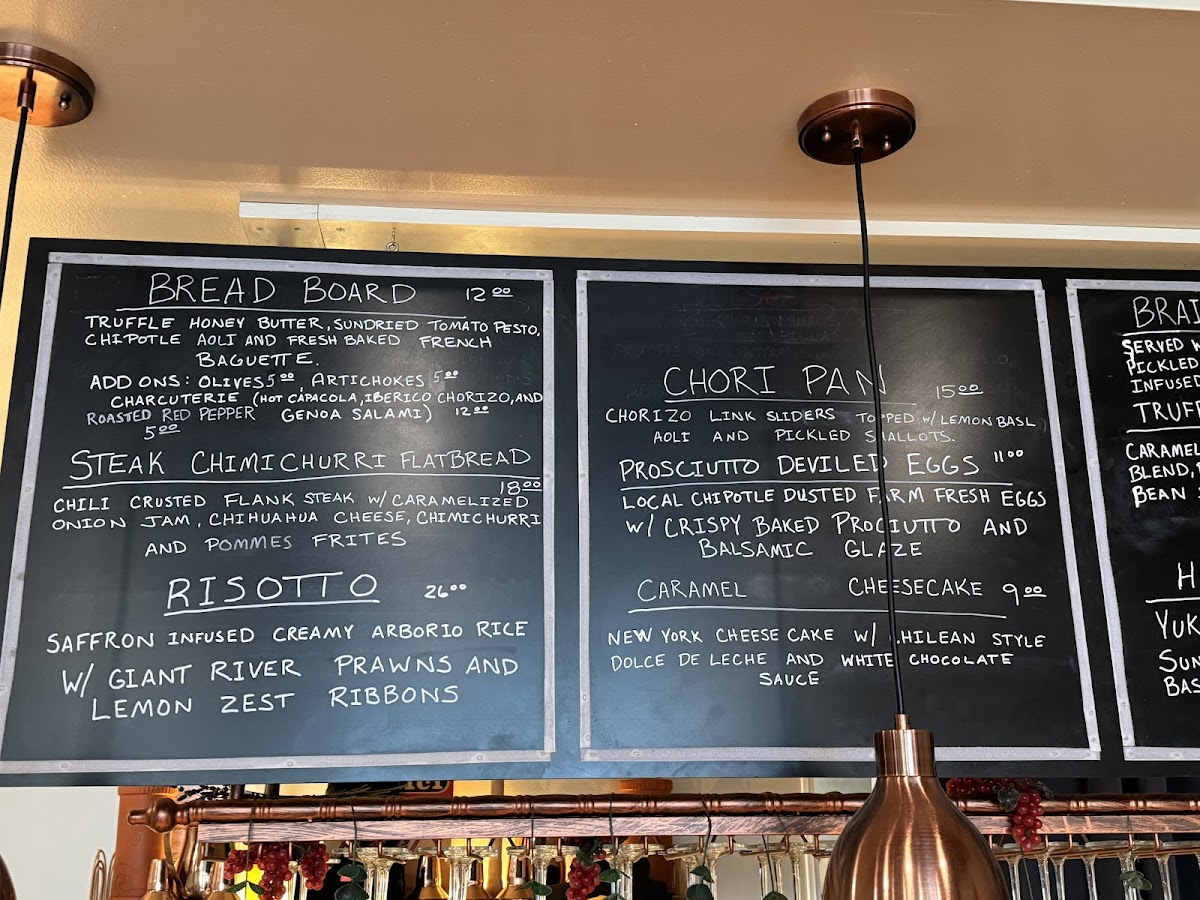 BREAD BOARD 12.00
TRUFFLE HONEY BUTTER, SUNDRIED TOMATO PESTO,
CHIPOTLE AOLI AND FRESH BAKED FRENCH
BAGUETTE.
ADD ONS: OLIVES 5.00, ARTICHOKES 5.00
CHARCUTERIE (HOT CAPACOLA, IBERICO CHORIZO, AND
ROASTED RED PEPPER GENOA SALAMI) 12.00
5.00
STEAK CHIMICHURRI FLATBREAD
18.00
CHILI CRUSTED FLANK STEAK W/ CARAMELIZED
ONION JAM, CHIHUAHUA CHEESE, CHIMICHURRI
AND POMMES FRITES
RISOTTO 26.00
SAFFRON INFUSED CREAMY ARBORIO RICE
W/ GIANT RIVER PRAWNS AND
LEMON ZEST RIBBONS
CHORI PAN 15.00
CHORIZO LINK SLIDERS TOPPED W/ LEMON BASL
AOLI AND PICKLED SHALLOTS.
PROSCIUTTO DEVILED EGGS 11.00
LOCAL CHIPOTLE DUSTED FARM FRESH EGGS
W/ CRISPY BAKED PROCIUTTO AND
BALSAMIC GLAZE
CARAMEL CHEESECAKE 9.00
NEW YORK CHEESE CAKE W/ CHILEAN STYLE
DOLCE DE LECHE AND WHITE CHOCOLATE
SAUCE
SERVED
PICKLED
INFUSED
CARAMEL
BLEND,
BEAN